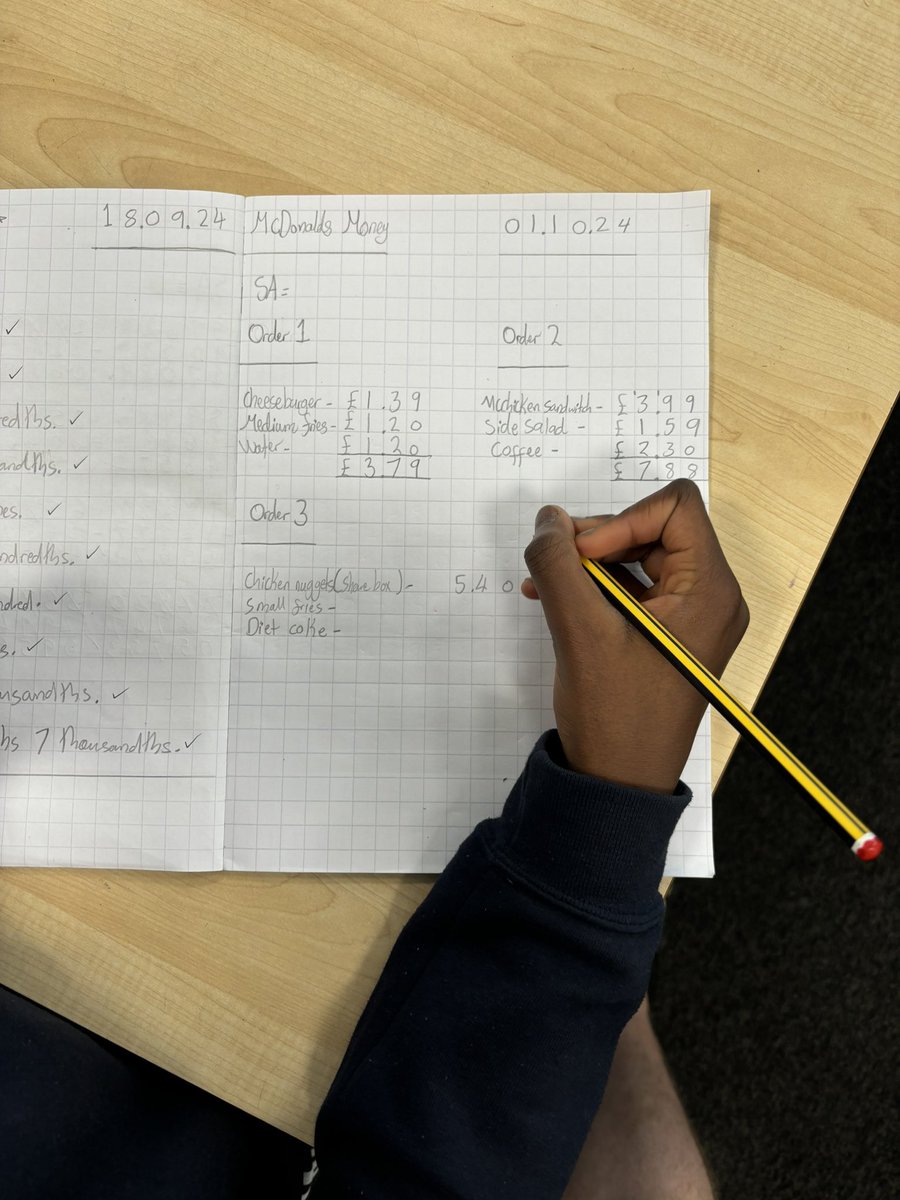 18.09.24
✓
✓
redths. ✓
andths. ✓
es. ✓
ndredths. ✓
ndred. ✓
s. ✓
usandths. ✓
hs 7 thousandths. ✓
McDonalds Money 01.10.24
SA=
Order 1
Cheeseburger - £1.39
Medium fries - £1.20
Water - £1.20
£3.79
Order 2
Mcchicken Sandwitch - £3.99
Side Salad - £1.59
Coffee - £2.30
£7.88
Order 3
Chicken nuggets (share box) - 5.40
Small fries -
Diet coke -